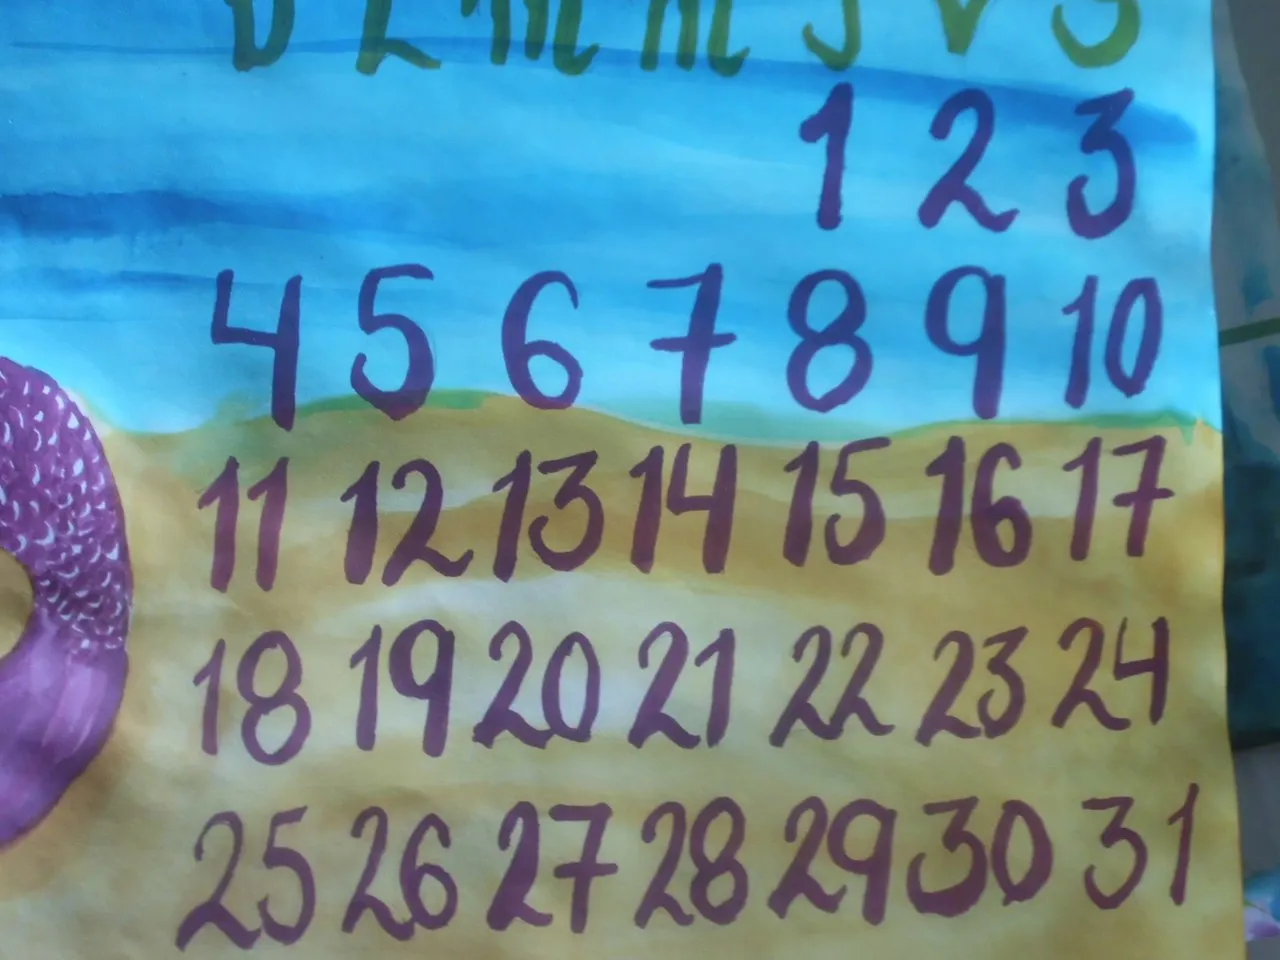 D L m m J V S
1 2 3
4 5 6 7 8 9 10
11 12 13 14 15 16 17
18 19 20 21 22 23 24
25 26 27 28 29 30 31